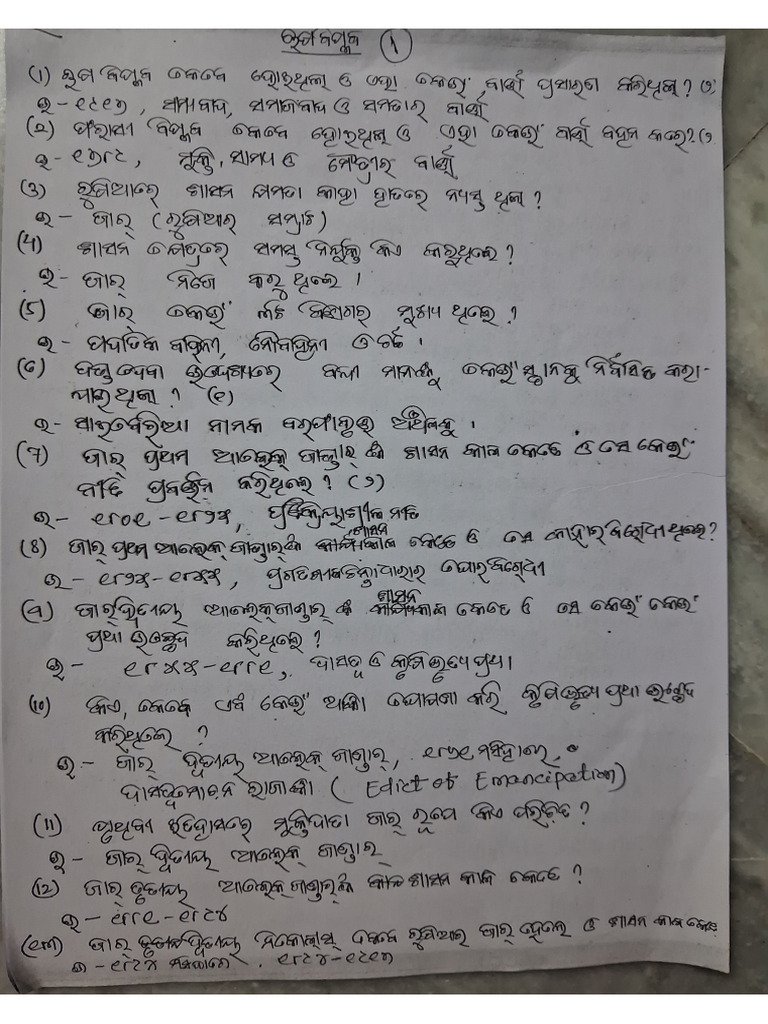 ଋଷ ବିପ୍ଳବ (1)
(1) ଋଷ ବିପ୍ଳବ କେବେ ହୋଇଥିଲା ଓ ଏହା କେଉଁ ବାର୍ତ୍ତା ପ୍ରସାରଣ କରିଥିଲା ? (୨)
ଉ - ୧୯୧୭, ସାମ୍ୟବାଦ, ସମାଜବାଦ ଓ ସମତାର ବାର୍ତ୍ତା
(୨) ଫରାସୀ ବିପ୍ଳବ କେବେ ହୋଇଥିଲା ଓ ଏହା କେଉଁ ବାର୍ତ୍ତା ବହନ କରେ? (୨
ଉ - ୧୭୮୯, ମୁକ୍ତି, ସାମ୍ୟ ଓ ମୈତ୍ରୀର ବାର୍ତ୍ତା
(୩) ରୁଷିଆରେ ଶାସନ କ୍ଷମତା କାହା ହାତରେ ନ୍ୟସ୍ତ ଥିଲା ?
ଉ - ଜାର୍ (ରୁଷିଆର ସମ୍ରାଟ)
(4) ଶାସନ କ୍ଷେତ୍ରରେ ସମସ୍ତ ନିଯୁକ୍ତି କିଏ କରୁଥିଲେ ?
ଉ - ଜାର୍ ନିଜେ କରୁଥିଲେ ।
(5) ଜାର୍ କେଉଁ ବିଭାଗର ମୁଖ୍ୟ ଥିଲେ ?
ଉ - ପଦାତିକ ବାହିନୀ, ନୌବାହିନୀ ଓ ଚର୍ଚ୍ଚ ।
(6) ଦଣ୍ଡ ଦେବା ଉଦ୍ଦେଶ୍ୟରେ ବନ୍ଦୀ ମାନଙ୍କୁ କେଉଁ ସ୍ଥାନକୁ ନିର୍ବାସିତ କରା-
ଯାଇଥିଲା ? (୧)
ଉ - ସାଇବେରିଆ ନାମକ ବରଫାବୃତ ଅଞ୍ଚଳକୁ ।
(7) ଜାର୍ ପ୍ରଥମ ଆଲେକ୍ ଜାଣ୍ଡାର୍ ଙ୍କ ଶାସନ କାଳ କେତେ ଓ ସେ କେଉଁ
ନୀତି ପ୍ରବର୍ତ୍ତନ କରିଥିଲେ ? (୨)
ଉ - ୧୮୦୧ - ୧୮୨୫, ପ୍ରତିକ୍ରିୟାଶୀଳ ନୀତି
(8) ଜାର୍ ପ୍ରଥମ ଆଲେକ୍ ଜାଣ୍ଡାର୍ଙ୍କ ଶାସନ କାଳ କେତେ ଓ ସେ କାହାର ବିରୋଧୀ ଥିଲେ?
ଉ - ୧୮୨୫ - ୧୮୫୫, ପ୍ରଗତିଶୀଳ ଚିନ୍ତାଧାରାର ଘୋର ବିରୋଧୀ
(9) ଜାର୍ ଦ୍ୱିତୀୟ ଆଲେକ୍ଜାଣ୍ଡାର୍ ଙ୍କ ଶାସନ କାଳ କେତେ ଓ ସେ କେଉଁ କେଉଁ
ପ୍ରଥା ଉଚ୍ଛେଦ କରିଥିଲେ ?
ଉ - ୧୮୫୫ - ୧୮୮୧, ଦାସତ୍ୱ ଓ କୃଷିଭୃତ୍ୟ ପ୍ରଥା ।
(10) କିଏ, କେବେ ଏବଂ କେଉଁ ଆଜ୍ଞା ଘୋଷଣା କରି କୃଷିଭୃତ୍ୟ ପ୍ରଥା ଉଚ୍ଛେଦ
କରିଥିଲେ ?
ଉ - ଜାର୍ ଦ୍ୱିତୀୟ ଆଲେକ୍ ଜାଣ୍ଡାର୍, ୧୮୬୧ ମସିହାରେ,
ଦାସତ୍ୱମୋଚନ ରାଜାଜ୍ଞା ( Edict of Emancipation)
(11) ପୃଥିବୀ ଇତିହାସରେ ମୁକ୍ତିଦାତା ଜାର୍ ରୂପେ କିଏ ପରିଚିତ ?
ଉ - ଜାର୍ ଦ୍ୱିତୀୟ ଆଲେକ୍ ଜାଣ୍ଡାର୍
(12) ଜାର୍ ତୃତୀୟ ଆଲେକ୍ ଜାଣ୍ଡାର୍ଙ୍କ ଶାସନ କାଳ କେତେ ?
ଉ - ୧୮୮୧ - ୧୮୯୪
(୧୩) ଜାର୍ ଦ୍ୱିତୀୟ ନିକୋଲାସ୍ କେବେ ରୁଷିଆର ଜାର୍ ହେଲେ ଓ ଶାସନ କାଳ କେତେ
ଉ - ୧୮୯୪ ମସିହାରେ . ୧୮୯୪ - ୧୯୧୭